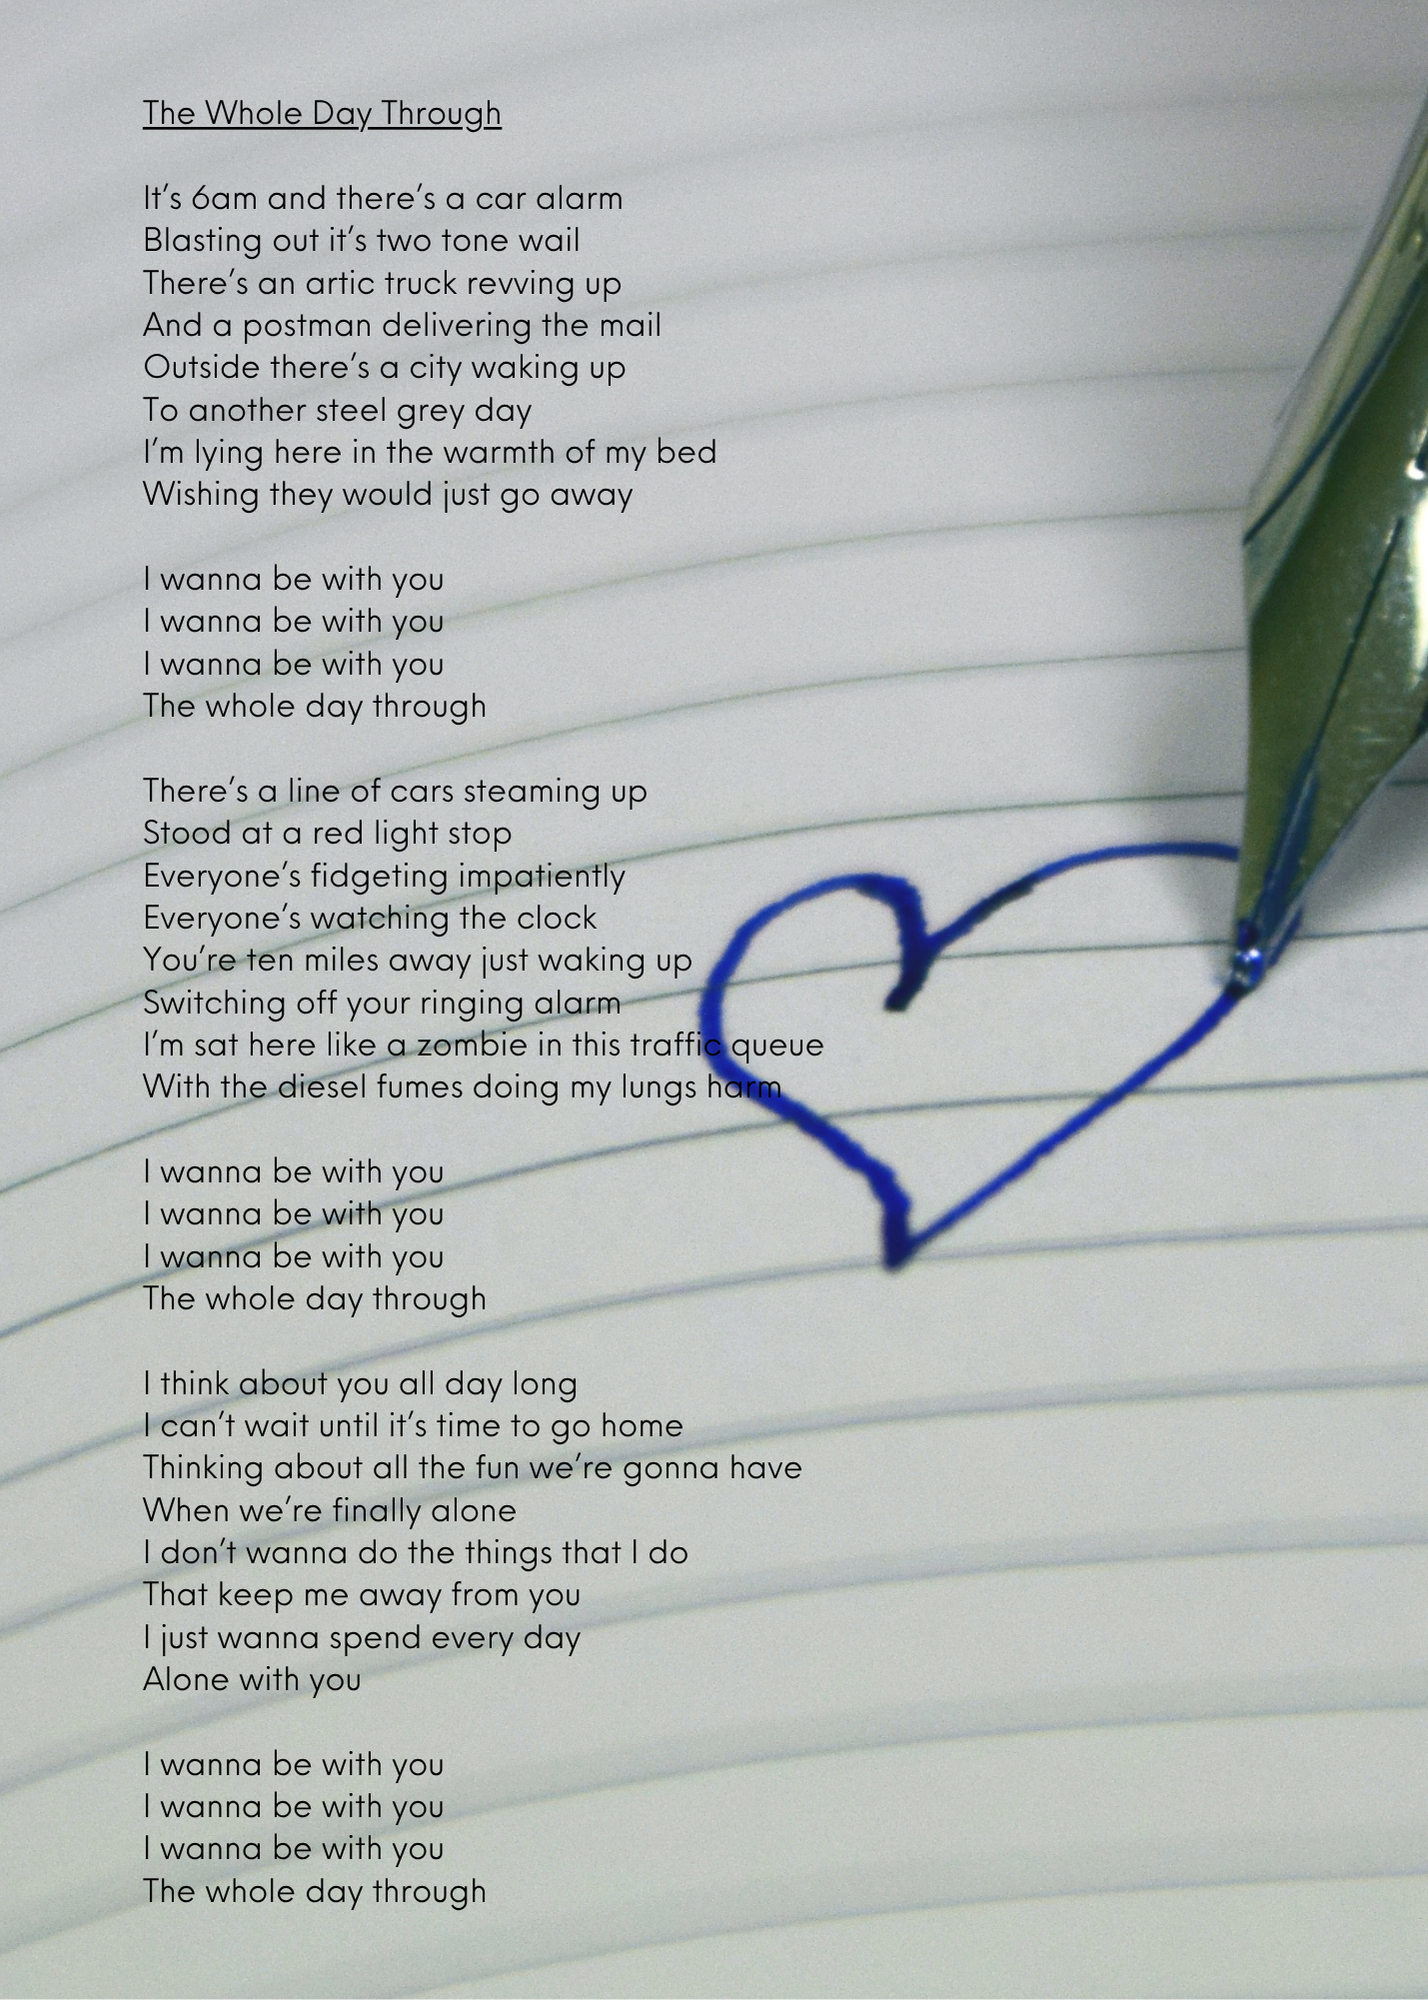 The Whole Day Through
It's 6am and there's a car alarm
Blasting out it's two tone wail
There's an artic truck revving up
And a postman delivering the mail
Outside there's a city waking up
To another steel grey day
I'm lying here in the warmth of my bed
Wishing they would just go away
I wanna be with you
I wanna be with you
I wanna be with you
The whole day through
There's a line of cars steaming up
Stood at a red light stop
Everyone's fidgeting impatiently
Everyone's watching the clock
You're ten miles away just waking up
Switching off your ringing alarm
I'm sat here like a zombie in this traffic queue
With the diesel fumes doing my lungs harm
I wanna be with you
I wanna be with you
I wanna be with you
The whole day through
I think about you all day long
I can't wait until it's time to go home
Thinking about all the fun we're gonna have
When we're finally alone
I don't wanna do the things that I do
That keep me away from you
I just wanna spend every day
Alone with you
I wanna be with you
I wanna be with you
I wanna be with you
The whole day through